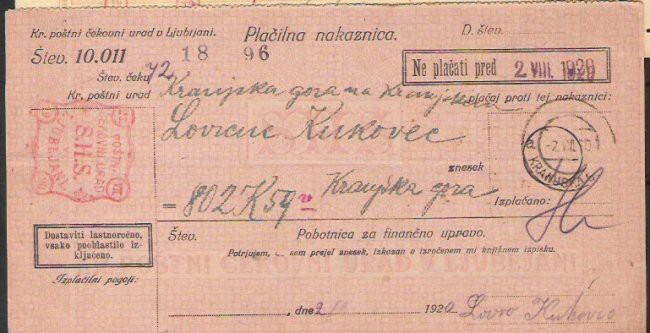 Kr. poštni čekovni urad v Ljubljani. Plačilna nakaznica. D. štev.
Štev. 10.011 18 96
Ne plačati pred 2 VIII. 1920
Štev. čeku 42
Kr. poštni urad Kranjska gora na Kranjskem plačaj proti tej nakaznici:
Lovrenc Kukovec
S.H.S.
znesek
= 802 K 59 v Kranjska gora Izplačano:
Dostaviti lastnoročno,
vsako pooblastilo iz-
ključeno.
Štev. Pobotnica za finančno upravo.
Potrjujem, sem prejel znesek, izkazan o izročenem mi knjižnem izpisku.
Izplačilni pogoji:
, dne 2 1920 Lovro Kukovec